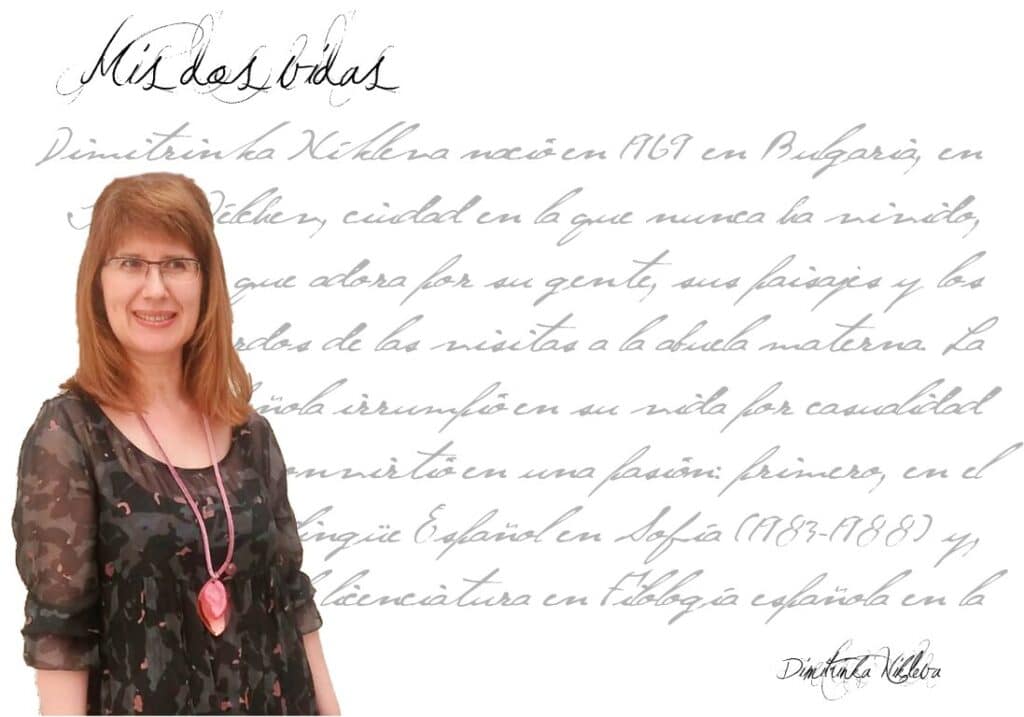 Mis dos vidas
Dimitrinka Níkleva nació en 1969 en Bulgaria, en
ciudad en la que nunca ha vivido,
que adora por su gente, sus paisajes y los
rdos de las visitas a la abuela materna. La
ñola irrumpió en su vida por casualidad
onvirtió en una pasión: primero, en el
lingüe Español en Sofía (1983-1988) y,
licenciatura en Filología española en la
Dimitrinka Nikleva